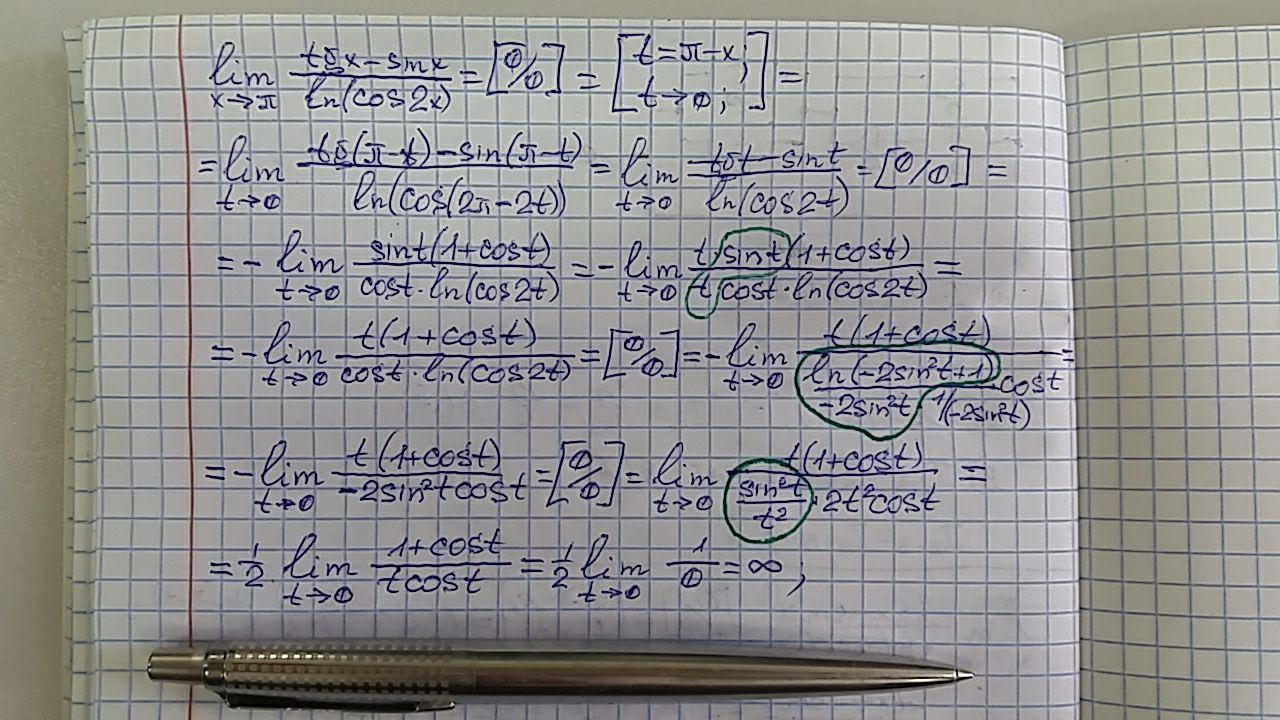 lim x→π (tg x − sin x)/(ln(cos 2x)) = [0/0] = [t = π−x; t→0;] =
= lim t→0 (tg(π−t) − sin(π−t))/(ln(cos(2π−2t))) = lim t→0 (−tg t − sin t)/(ln(cos 2t)) = [0/0] =
= − lim t→0 (sin t(1+cos t))/(cos t · ln(cos 2t)) = − lim t→0 (t · sin t(1+cos t))/(t · cos t · ln(cos 2t)) =
= − lim t→0 (t(1+cos t))/(cos t · ln(cos 2t)) = [0/0] = − lim t→0 (t(1+cos t))/((ln(−2sin²t+1))/(−2sin²t · 1/(−2sin²t)) · cos t) =
= − lim t→0 (t(1+cos t))/(−2sin²t cos t) = [0/0] = lim t→0 (t(1+cos t))/((sin²t)/(t²) · 2t² cos t) =
= 1/2 lim t→0 (1+cos t)/(t cos t) = 1/2 lim t→0 1/0 = ∞;